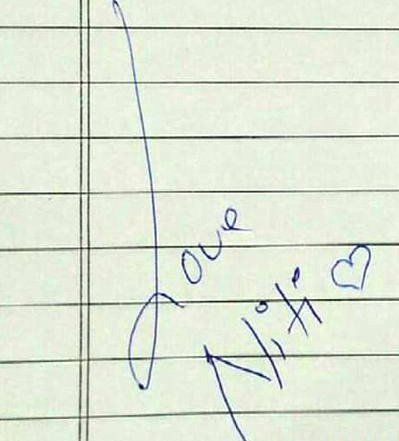 Love
Niti ♡